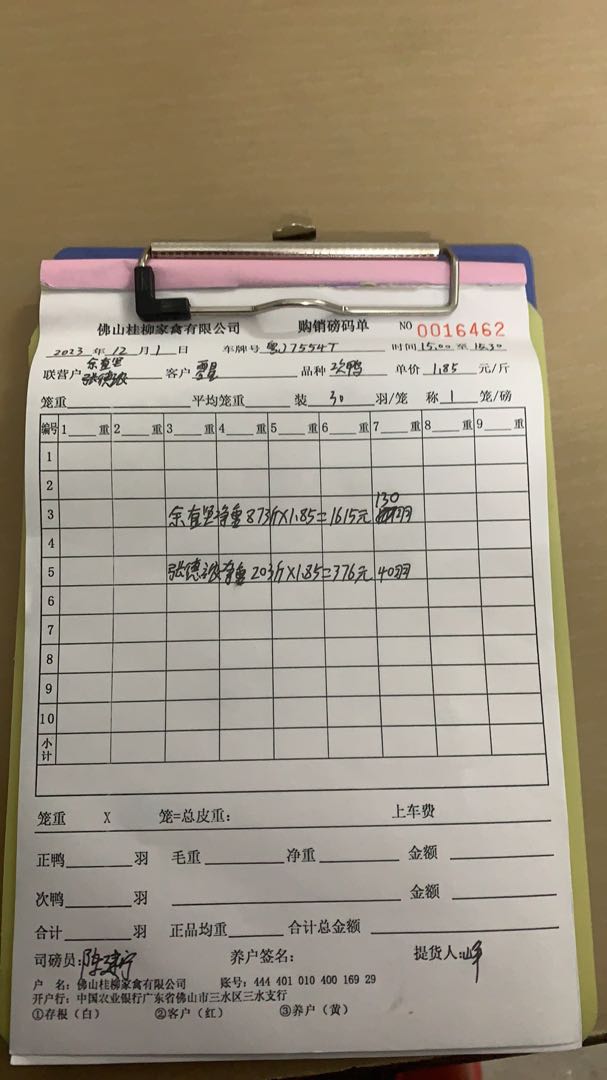 佛山桂柳家禽有限公司 购销磅码单 NO 0016462
2023 年 12 月 1 日 车牌号 粤J7554T 时间 15:00 至 15:30
联营户 余直坚 张德波 客户 零星 品种 次鸭 单价 1.85 元/斤
笼重 平均笼重 装 30 羽/笼 称 1 笼/磅
编号 1 重 2 重 3 重 4 重 5 重 6 重 7 重 8 重 9 重
1
2
130
3 净重873斤×1.85=1615元 羽
4
5 张德波净重203斤×1.85=376元 40羽
6
7
8
9
10
小计
笼重 X 笼=总皮重: 上车费
正鸭 羽 毛重 净重 金额
次鸭 羽 金额
合计 羽 正品均重 合计总金额
司磅员: 养户签名: 提货人:
户 名: 佛山桂柳家禽有限公司 账号: 444 401 010 400 169 29
开户行: 中国农业银行广东省佛山市三水区三水支行
①存根（白） ②客户（红） ③养户（黄）